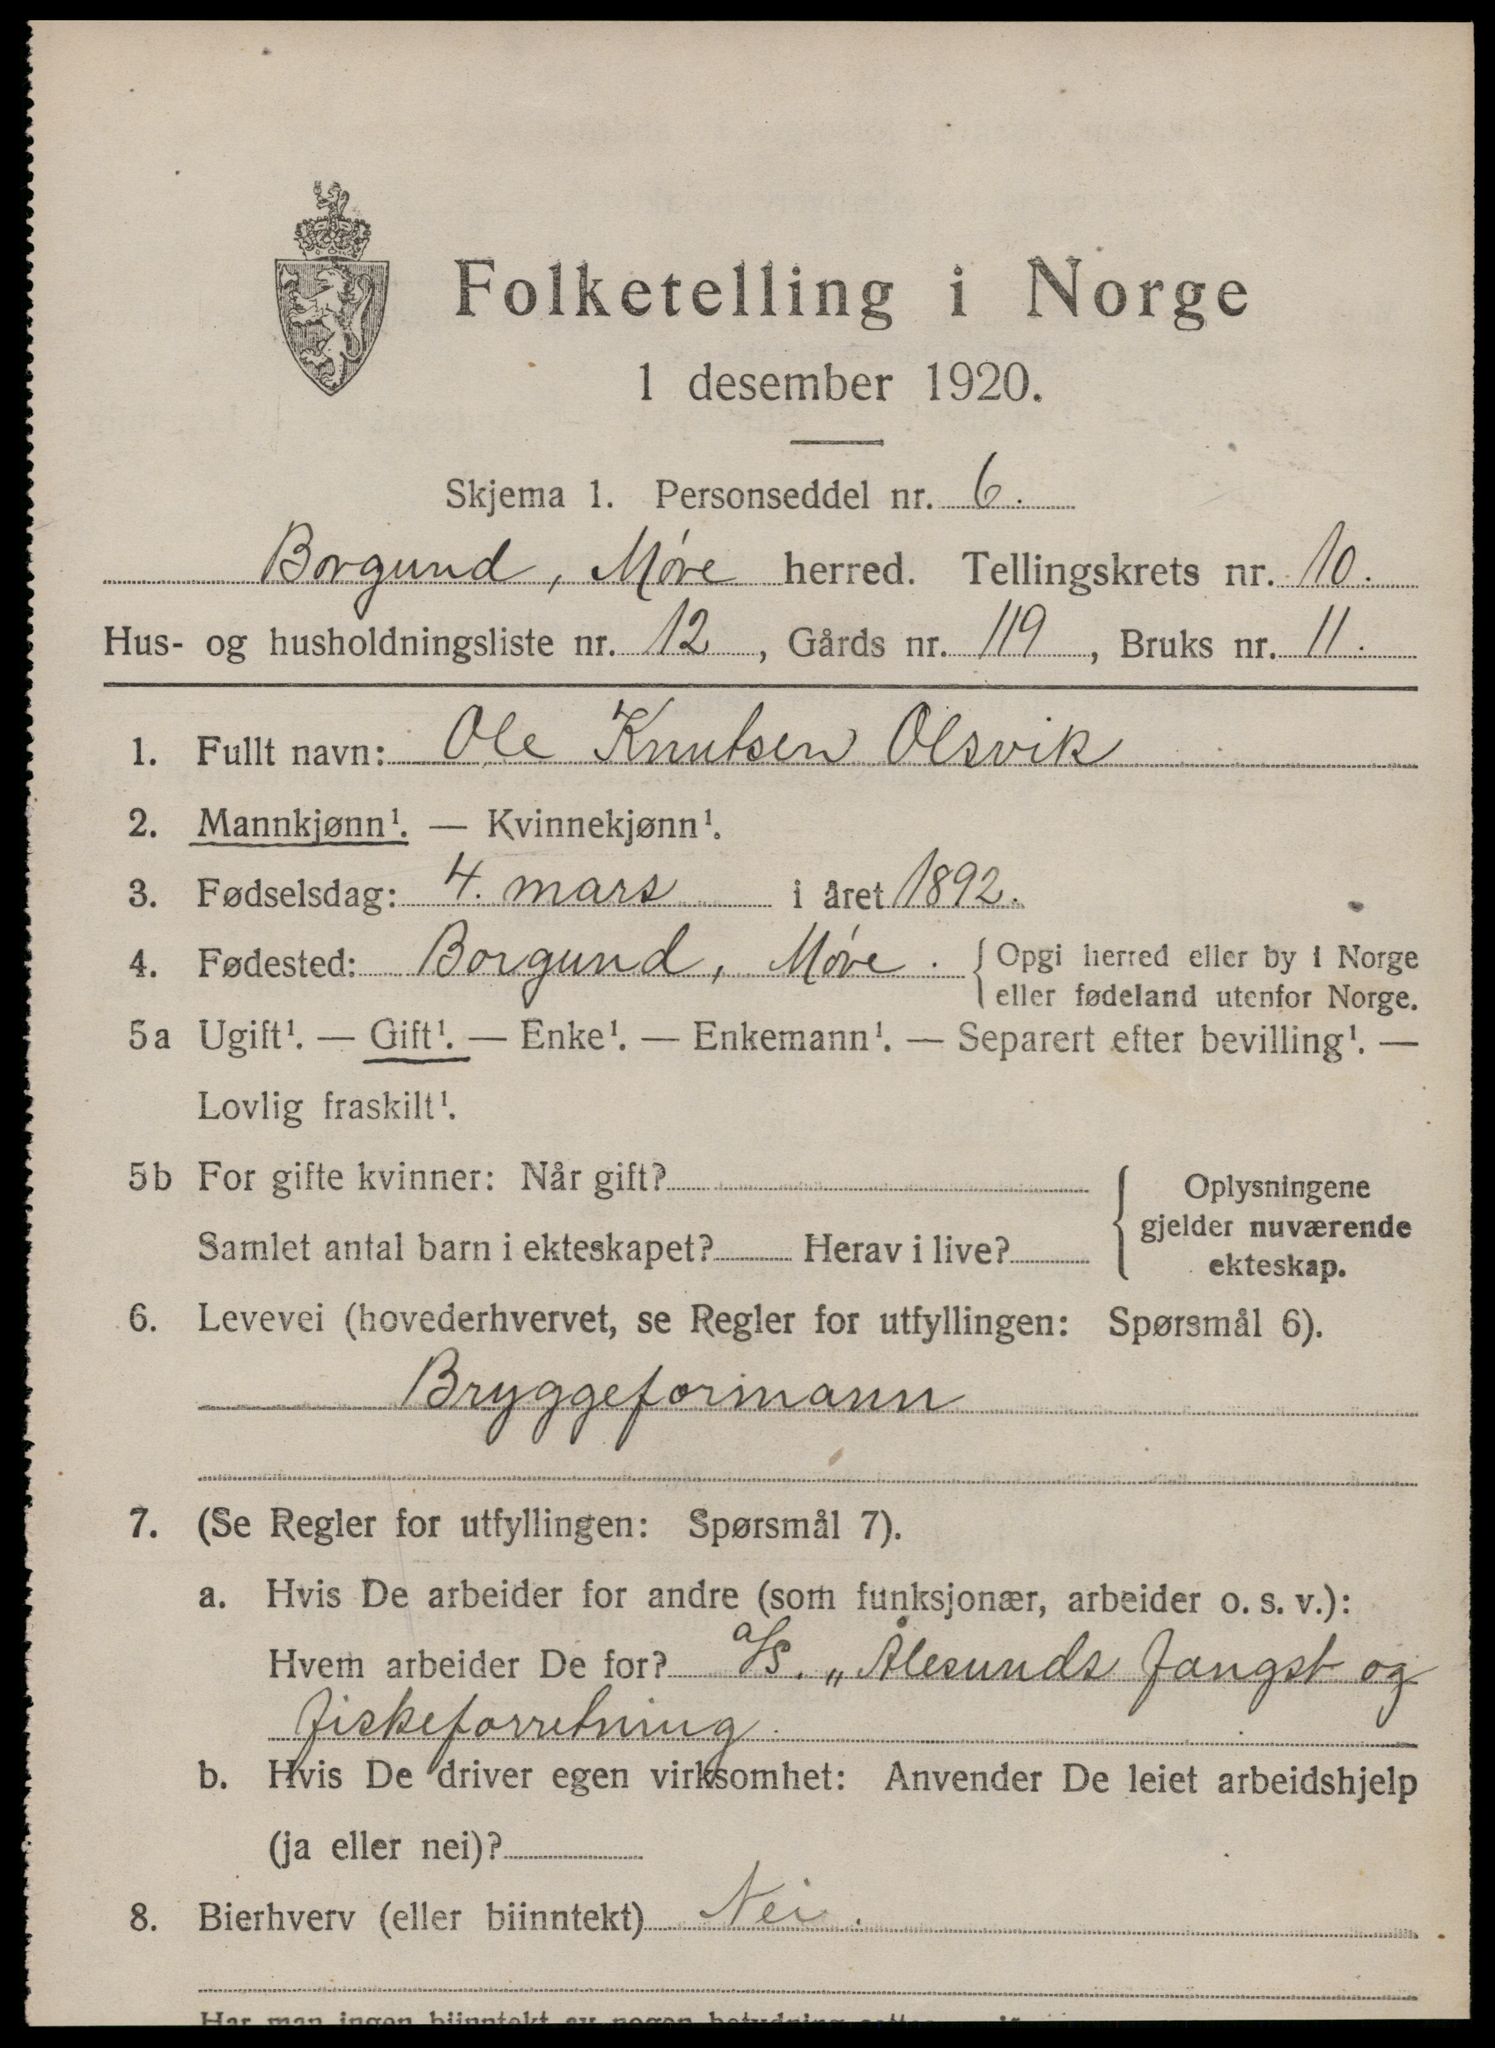 Folketelling i Norge
1 desember 1920.
Skjema 1. Personseddel nr. 6.
Borgund, Møre herred. Tellingskrets nr. 10.
Hus- og husholdningsliste nr. 12, Gårds nr. 119, Bruks nr. 11.
1. Fullt navn: Ole Knutsen Olsvik
2. Mannkjønn¹. — Kvinnekjønn¹.
3. Fødselsdag: 4. mars i året 1892.
4. Fødested: Borgund, Møre. { Opgi herred eller by i Norge
eller fødeland utenfor Norge.
5a Ugift¹. — Gift¹. — Enke¹. — Enkemann¹. — Separert efter bevilling¹. —
Lovlig fraskilt¹.
5b For gifte kvinner: Når gift?
Samlet antal barn i ekteskapet? Herav i live?
{ Oplysningene
gjelder nuværende
ekteskap.
6. Levevei (hovederhvervet, se Regler for utfyllingen: Spørsmål 6).
Bryggeformann
7. (Se Regler for utfyllingen: Spørsmål 7).
a. Hvis De arbeider for andre (som funksjonær, arbeider o. s. v.):
Hvem arbeider De for? a/s. „Ålesunds Fangst og
Fiskeforretning.
b. Hvis De driver egen virksomhet: Anvender De leiet arbeidshjelp
(ja eller nei)?
8. Bierhverv (eller biinntekt) Nei.
Har man ingen biinntekt av nogen betydning